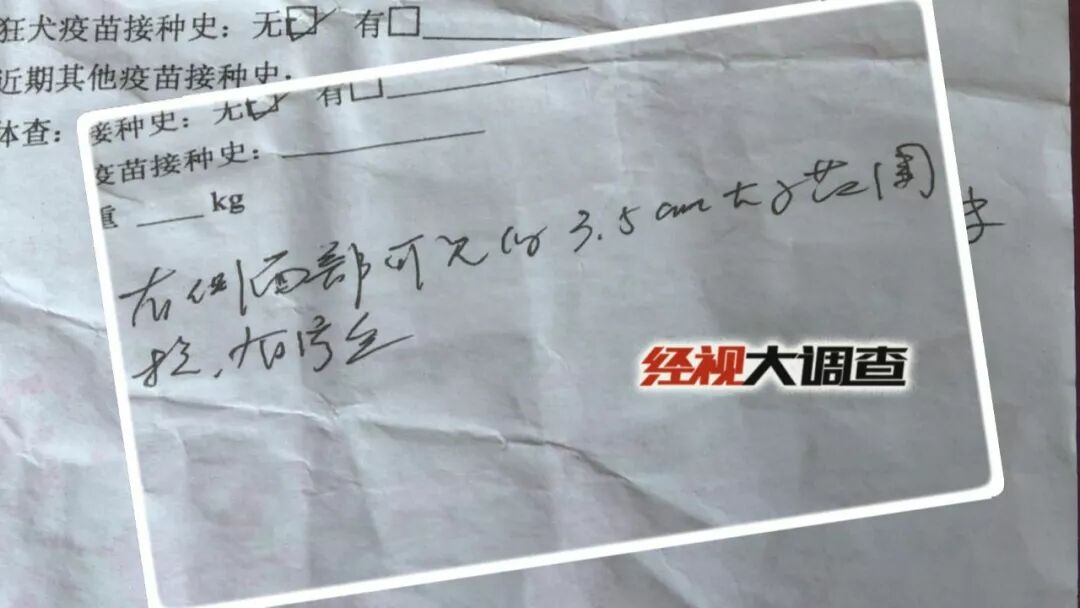 狂犬疫苗接种史：无☑ 有□
近期其他疫苗接种史：
体查：
接种史：无☑ 有□
疫苗接种史：
重 kg
右侧面部可见约3.5cm大小范围
经视大调查